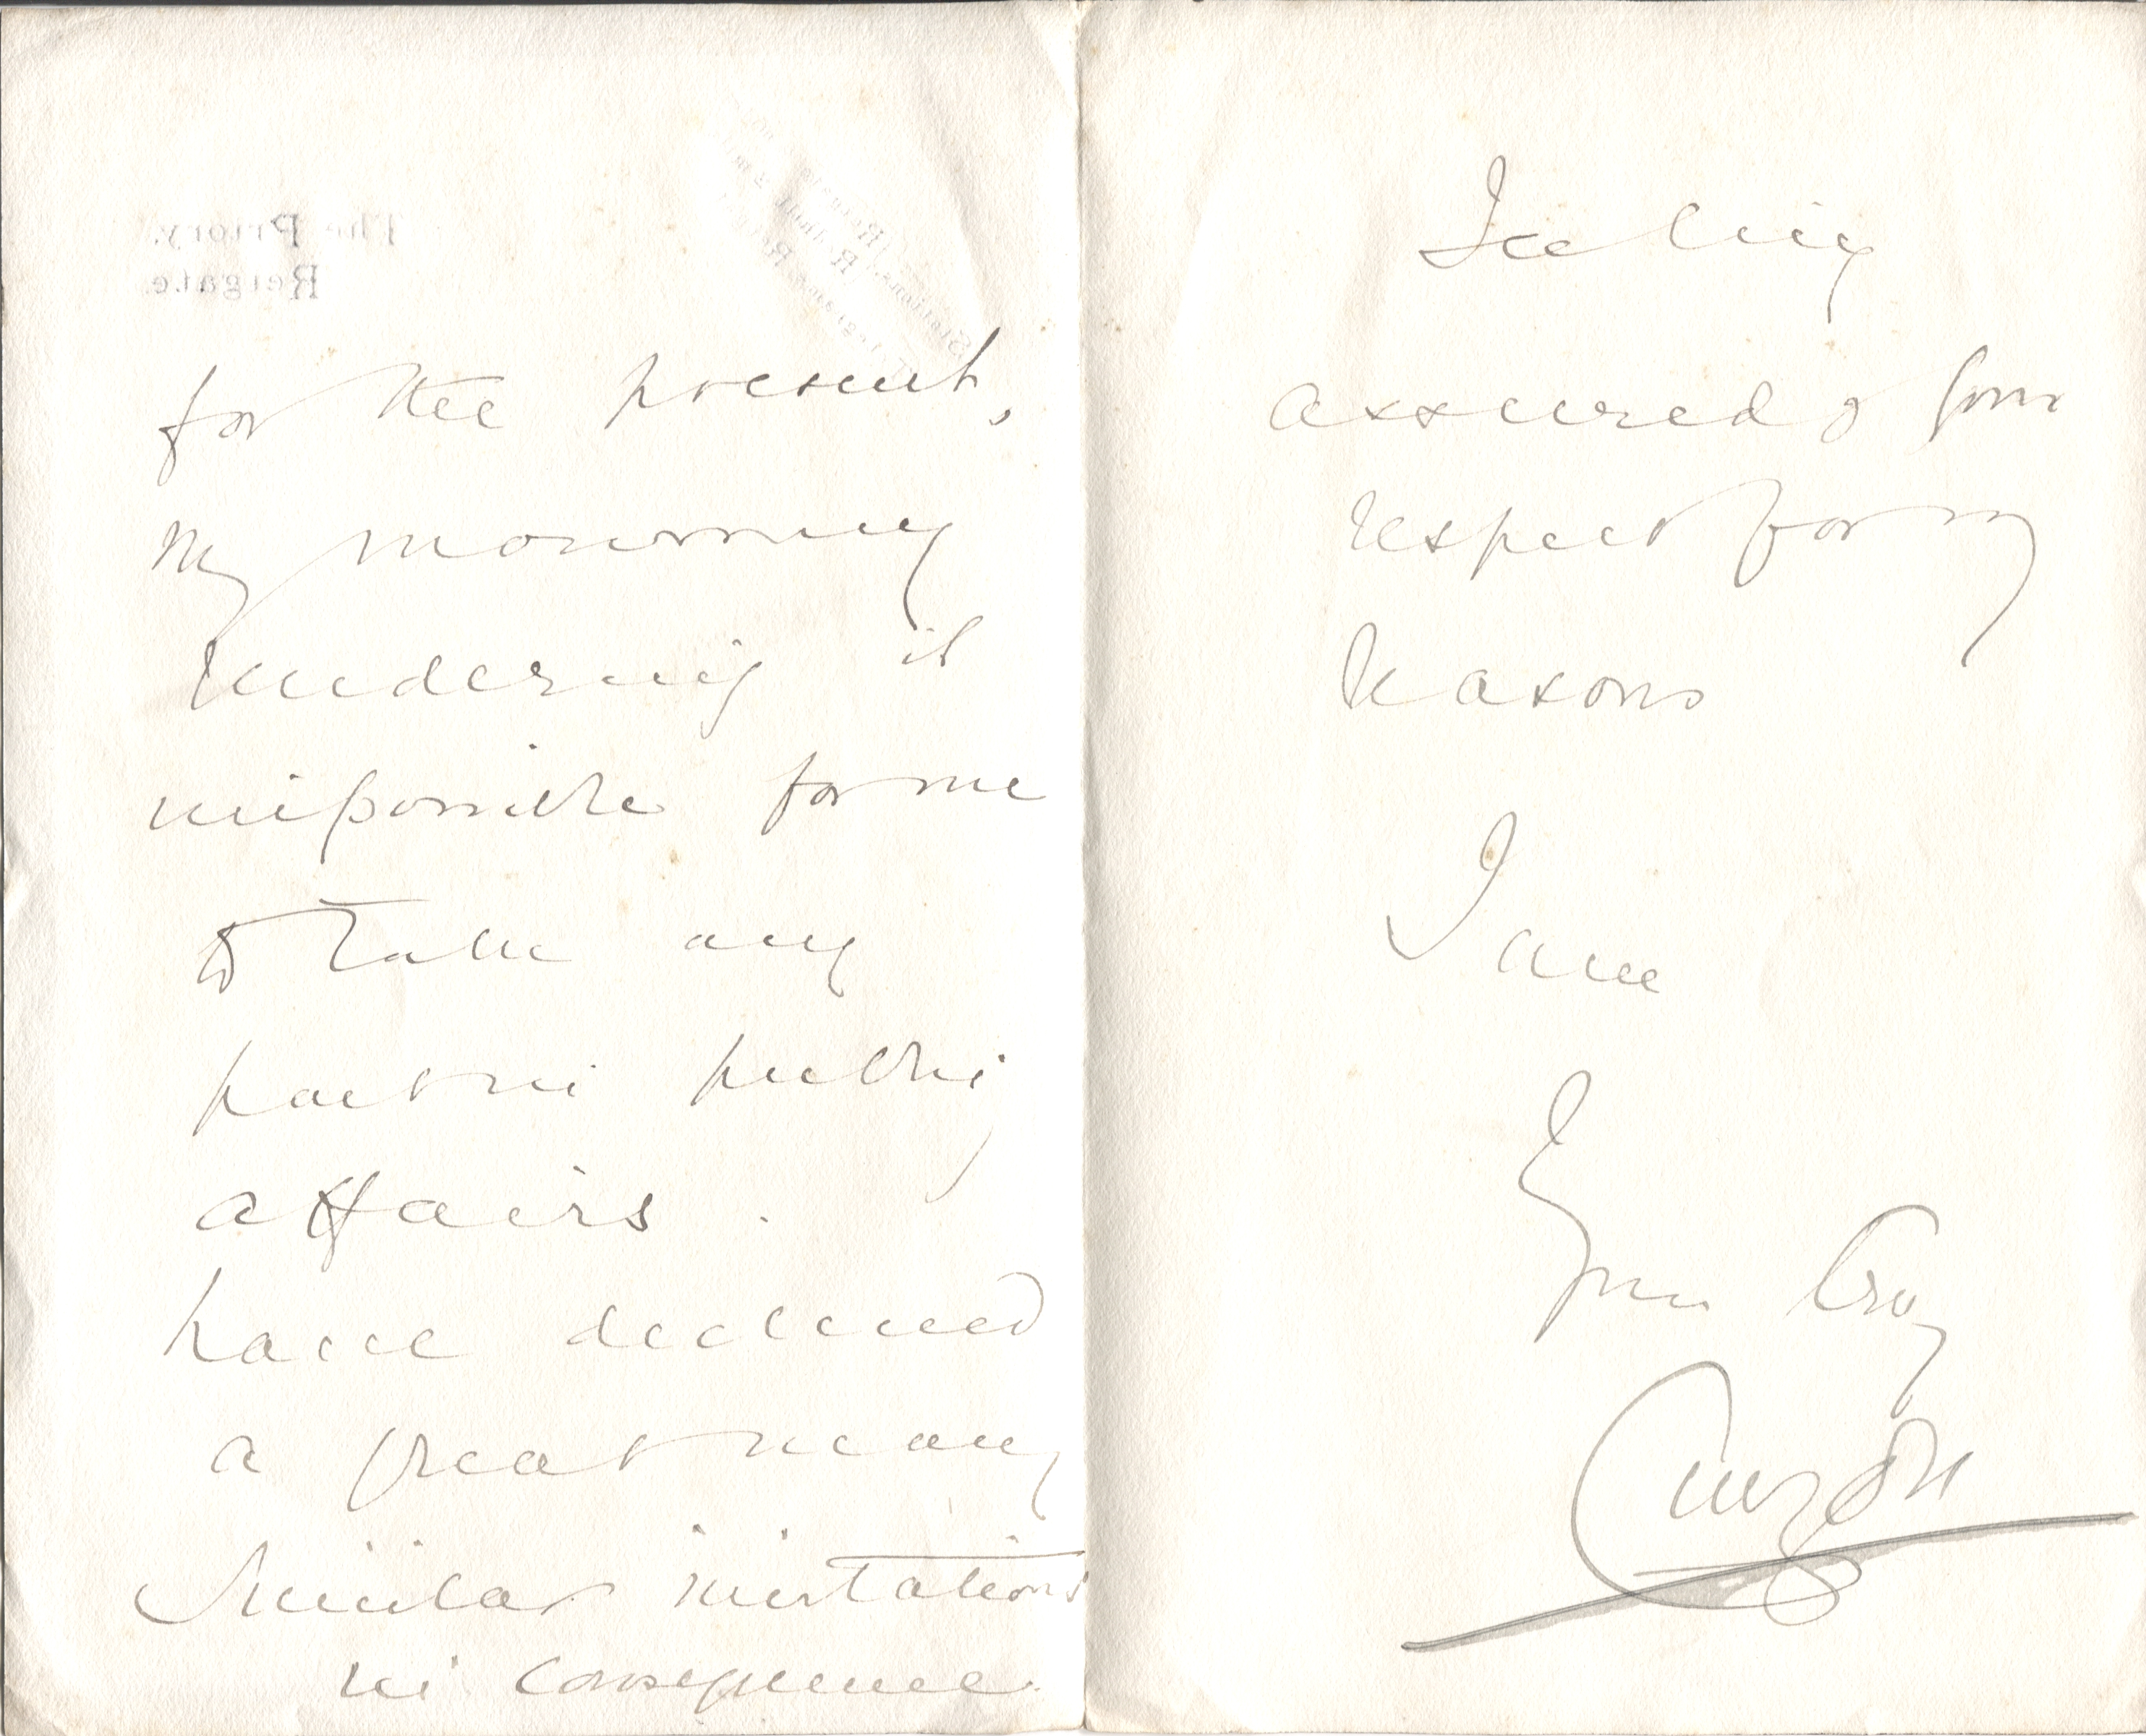 The Priory,
Reigate.
for the present,
my mourning
rendering it
impossible for me
to take any
part in public
affairs. I
have declined
a great many
similar invitations
in consequence.
Feeling
assured of your
respect for my
reasons
I am
Yours truly
Curzon